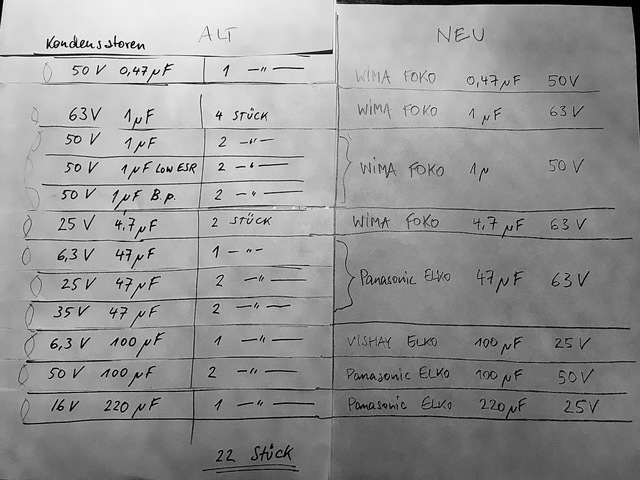 Kondensatoren ALT NEU
50 V 0,47µF 1 —"— WIMA FOKO 0,47µF 50V
63V 1µF 4 STÜCK WIMA FOKO 1µF 63V
50 V 1µF 2 —"—
50 V 1µF Low ESR 2 —"— WIMA FOKO 1µ 50V
50 V 1µF B.p. 2 —"—
25 V 4,7µF 2 STÜCK WIMA FOKO 4,7µF 63V
6,3V 47µF 1 —"—
25V 47µF 2 —"— Panasonic ELKO 47µF 63V
35V 47µF 2 —"—
6,3V 100µF 1 —"— VISHAY ELKO 100µF 25V
50V 100µF 2 —"— Panasonic ELKO 100µF 50V
16V 220µF 1 —"— Panasonic ELKO 220µF 25V
22 Stück